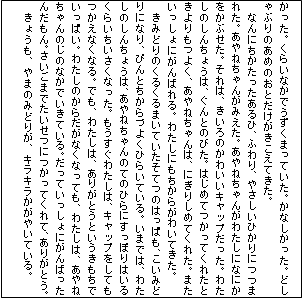 かった。くらいなかでうずくまっていた。かなしかった。どし
ゃぶりのあめのおとだけがきこえてきた。
　なんにちかたったあるひ、ふわり、やさしいひかりにつつま
れた。あやねちゃんがみえた。あやねちゃんがわたしになにか
をかぶせた。それは、きいろのかわいいキャップだった。わた
しのしんちょうは、ぐんとのびた。はじめてつかってくれたと
きよりもつよく、あやねちゃんは、にぎりしめてくれた。また
いっしょにがんばれる。わたしにもちからがわいてきた。
　きみどりのくるくるまいていたそてつのはっぱも、こいみど
りになり、ぴんとちからづよくひらいている。いまでは、わた
しのしんちょうは、あやねちゃんのてのひらにすっぽりはいる
くらいちいさくなった。もうすぐわたしは、キャップをしても
つかえなくなる。でも、わたしは、ありがとうというきもちで
いっぱい。わたしのからだがなくなっても、わたしは、あやね
ちゃんのじのなかでいきている。だっていっしょにがんばった
んだもん。さいごまでたいせつにつかってくれて、ありがとう。
　きょうも、やまのみどりが、キラキラかがやいている。